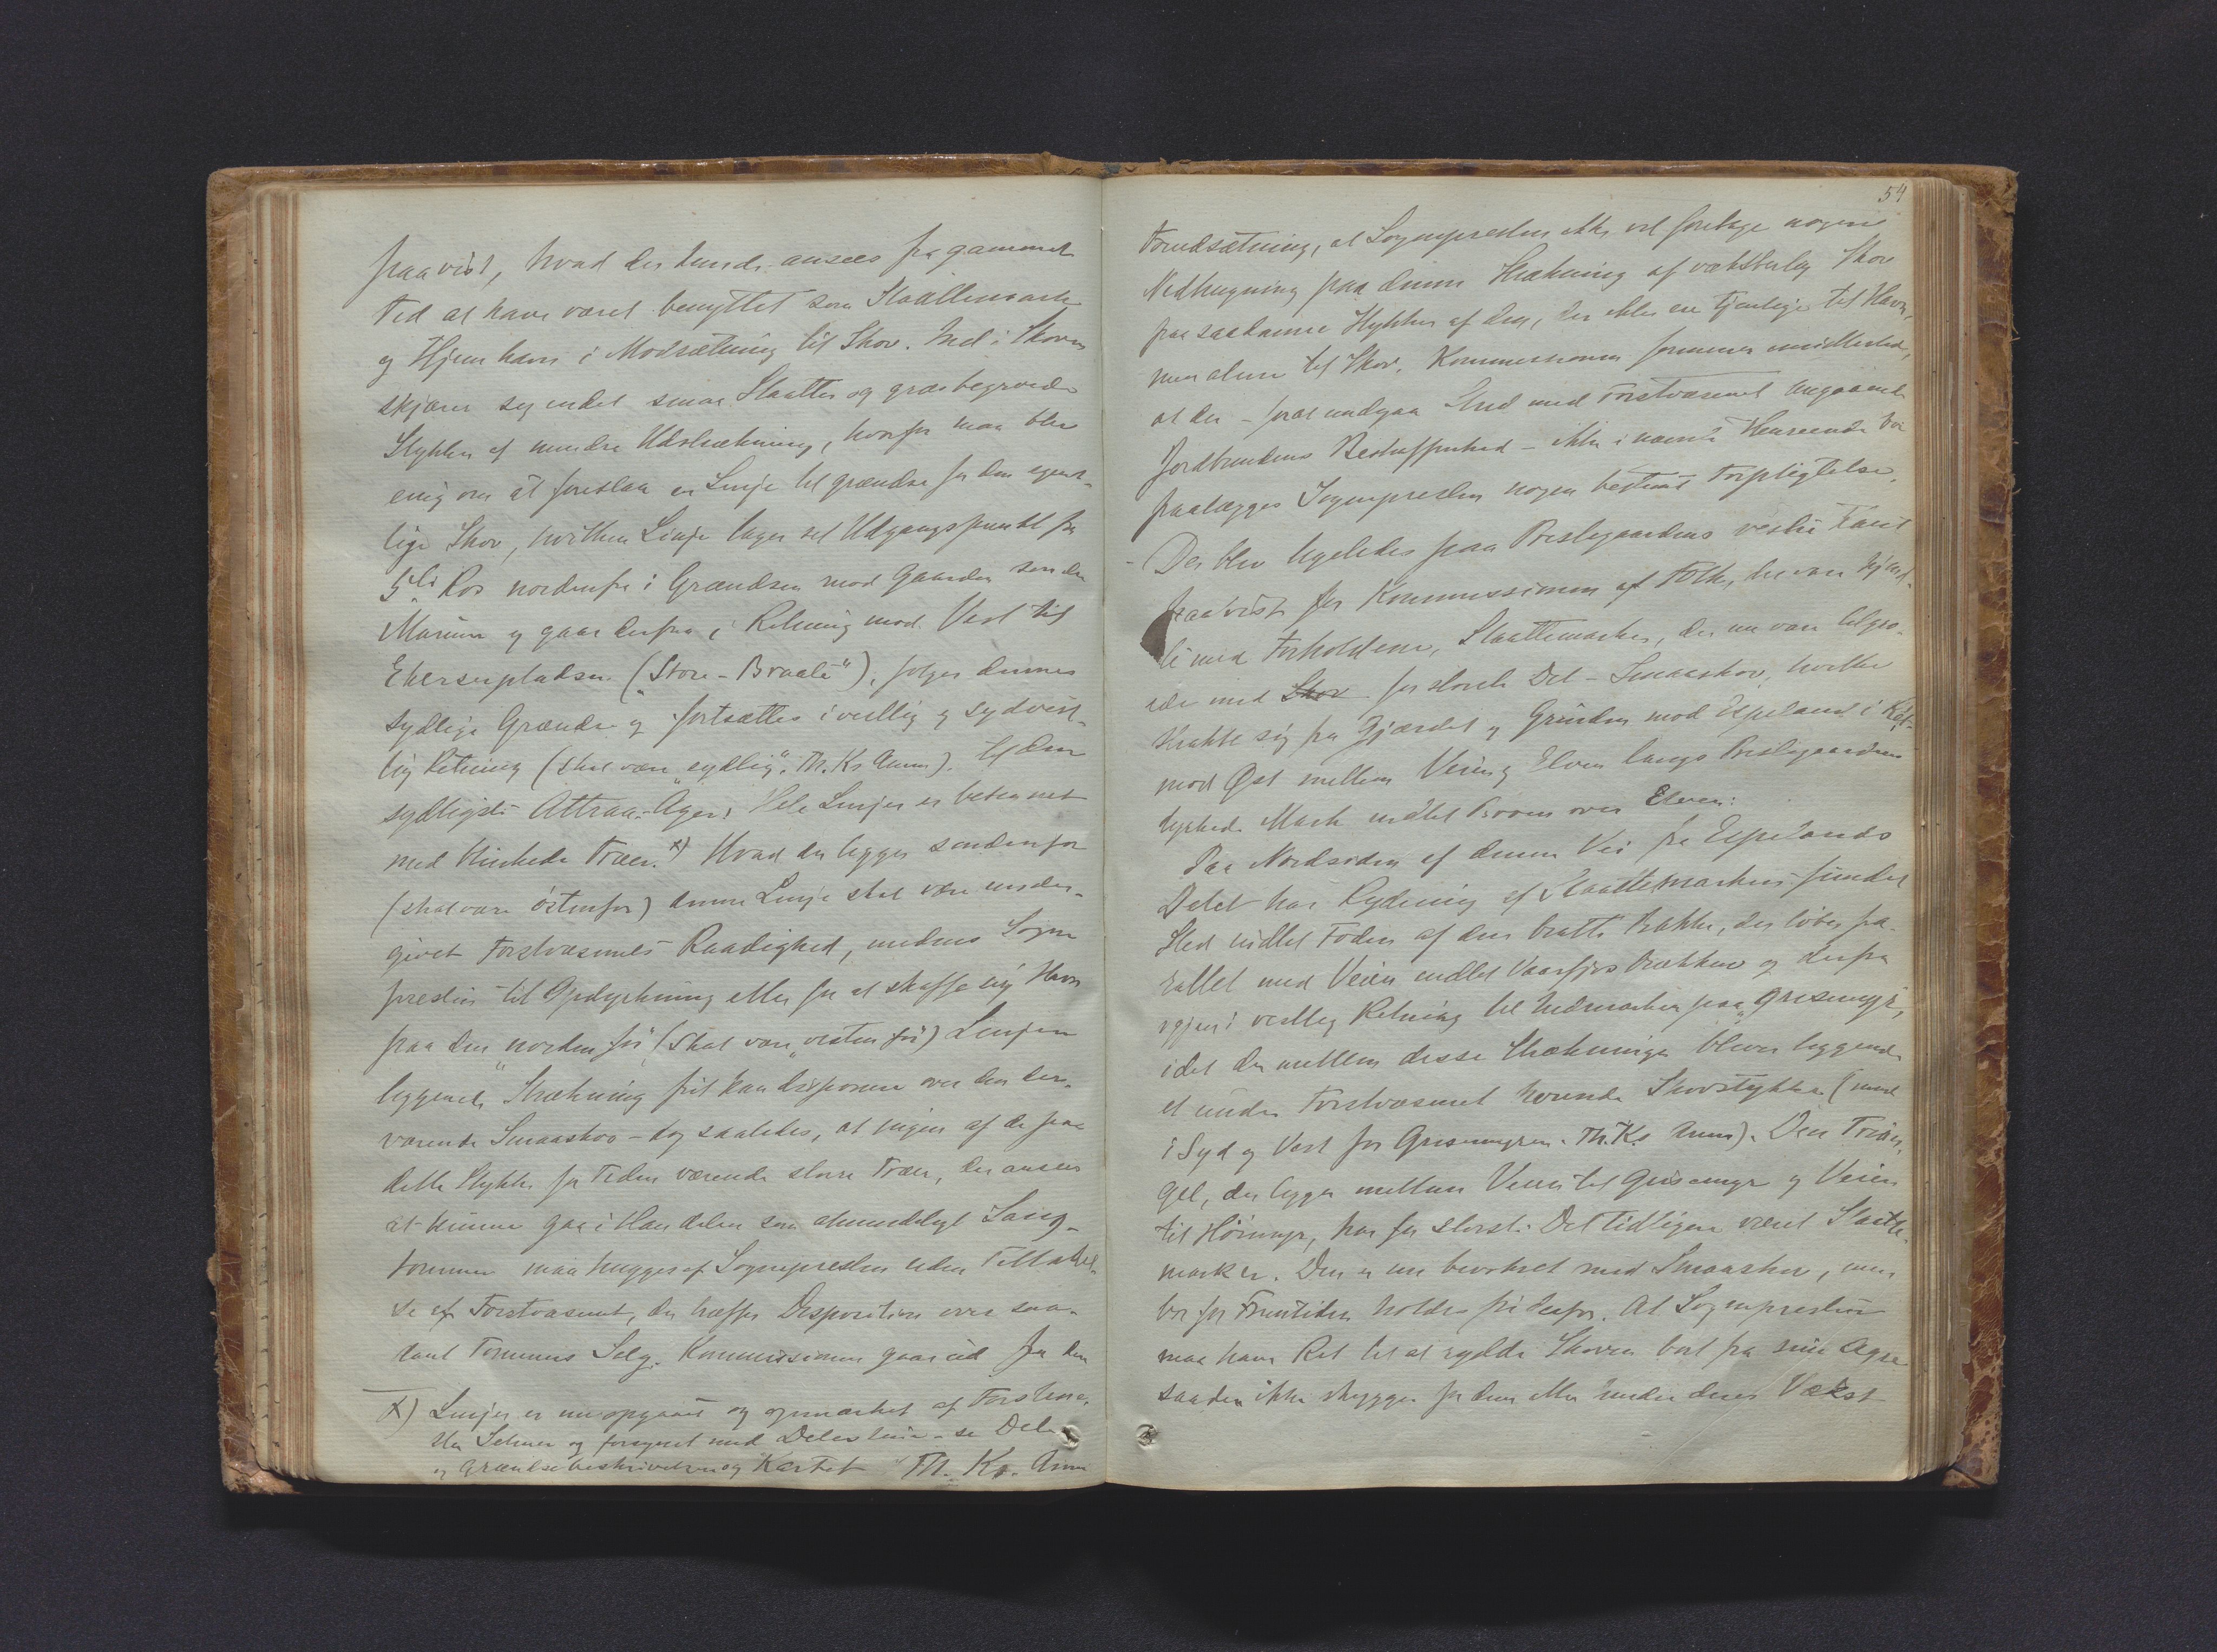 paavist, hvad der kunde ansees fra gammel
Tid at have været benyttet som Slaattemark
og Hjemhavn i Modsætning til Skov. Ind i Skoven
skjærer sig endel smaa Slaatter og græsbegroede
Stykker af mindre Udstrækning, hvorfor man blev
enig om at foreslaa en Linje til grændse for den egent-
lige Skov, hvilken Linje tager sit Udgangspunkt fra
5te Ros nordenfra i Grændsen mod Gaarden
og gaar derfra i Retning mod Vest til
Ekerserpladsen ("Store-Braate"), følger dennes
sydlige Grændse og fortsættes i vestlig og sydvest-
lig Retning (skal være "sydlig". Th. Ks Anm). til den
sydligste Attraa-Ager. Hele Linjen er betegnet
med blinkede Træer. x) Hvad der ligger søndenfor
(skal være østenfor) denne Linje skal være under-
givet Forstvæsenets Raadighed, medens Sogne
presten til Opdyrkning eller for at skaffe sig Havn
paa den "nordenfor" (skal være "vestenfor") Linjen
liggende Strækning frit kan disponere over den der-
værende Smaaskov - dog saaledes, at ingen af de paa
dette Stykke for Tiden værende større Træer, der ansees
at kunne gaa i Handelen som almindeligt Saug-
tømmer maa hugges af Sognepresten uden Tilladel-
se af Forstvæsenet, der træffer Disposition over saa-
dant Tømmers Salg. Kommissionen gaar ud fra den
x) Linjen er nu opgaaet og opmærket af Forstme-
ster Selmer og forsynet med Delestene - se Dele
og Grændsebeskrivelsen og Kartet Th. Ks. Anm
54
Forudsætning, at Sognepresten ikke vil foretage nogen
Nedhugning paa denne Strækning af væksterlig Skov
paa saadanne Stykker af den, der ikke ere tjenlige til Havn,
men alene til Skov. Kommissionen formener imidlertid,
at der - for at undgaa Strid med Forstvæsenet angaaende
Jordbundens Beskaffenhed - ikke i nævnte Henseende bør
paalægges Sognepresten nogen bestemt Forpligtelse.
- Der blev ligeledes paa Prestegaardens vestre Kant
paavist for Kommissionen af Folk, der vare kjend-
te med Forholdene, Slaattemarker, der nu vare tilgro-
ede med Skov for største Del - Smaaskov, hvilke
strakte sig fra Gjærdet og Grinden mod Espeland i Ret-
mod Øst mellem Veien og Elven langs Prestegaardens
dyrkede Mark indtil Broen over Elven:
Paa Nordsiden af denne Vei fra Espelands
Delet har Rydning af Slaattemarken fundet
Sted indtil Foden af den bratte Bakke, der løber pa-
rallel med Veien indtil Vaarfjøs Brækken og derfra
igjen i vestlig Retning til Indmarken paa "Grisemyr",
idet der mellem disse Strækninger bliver liggende
et under Forstvæsenet hørende Skovstykke (
i Syd og Vest for Grisemyren. Th. Ks Anm). Den Trian-
gel, der ligger mellem Veien til Grisemyr og Veien
til Hørmyr, har for største Del tidligere været Slaatte-
marker. Den er nu bevokset med Smaaskov, men
bør for Fremtiden holdes fri derfor. At Sognepresten
maa have Ret til at rydde Skoven bort fra sine Agre
saa den ikke skygger for dem eller hindrer deres Vækst